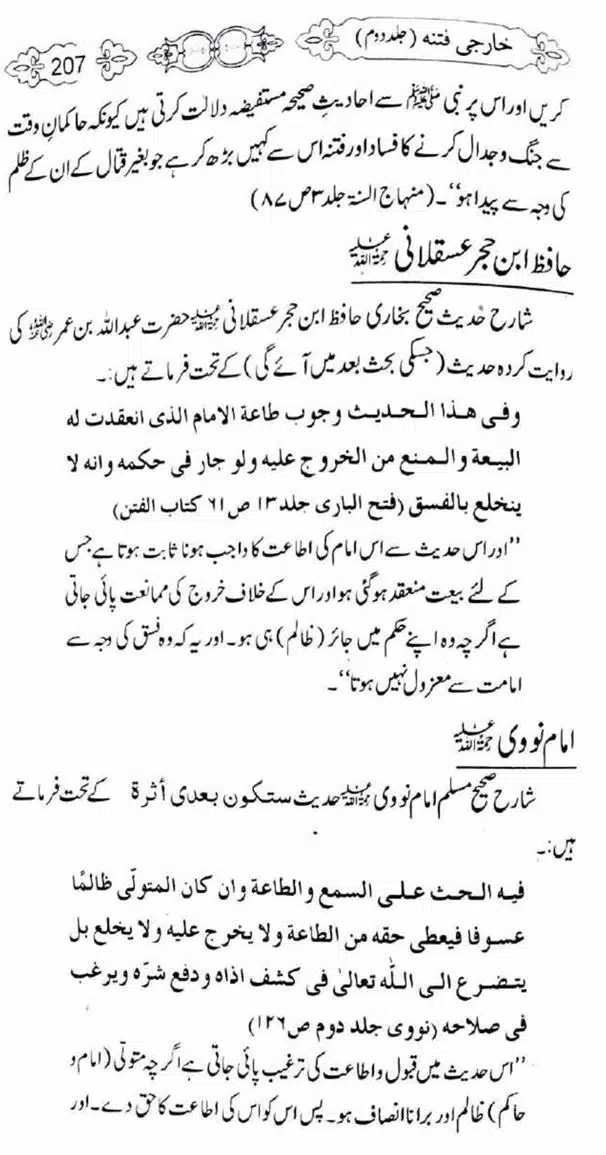 خارجی فتنہ (جلد دوم)
207
کریں اور اس پر نبی ﷺ سے احادیثِ صحیحہ مستفیضہ دلالت کرتی ہیں کیونکہ حاکمانِ وقت
سے جنگ و جدال کرنے کا فساد اور فتنہ اس سے کہیں بڑھ کر ہے جو بغیر قتال کے ان کے ظلم
کی وجہ سے پیدا ہو‘‘۔ (منہاج السنۃ جلد ۳ ص ۸۷)
حافظ ابن حجر عسقلانی رحمۃ اللہ علیہ
شارح حدیث صحیح بخاری حافظ ابن حجر عسقلانی رحمۃ اللہ علیہ حضرت عبداللہ بن عمر رضی اللہ عنہ کی
روایت کردہ حدیث (جسکی بحث بعد میں آئے گی) کے تحت فرماتے ہیں:۔
وفی هذا الحدیث وجوب طاعة الامام الذی انعقدت له
البیعة والمنع من الخروج علیه ولو جار فی حکمه وانه لا
ینخلع بالفسق (فتح الباری جلد ۱۳ ص ۶۱ کتاب الفتن)
’’اور اس حدیث سے اس امام کی اطاعت کا واجب ہونا ثابت ہوتا ہے جس
کے لئے بیعت منعقد ہو گئی ہو اور اس کے خلاف خروج کی ممانعت پائی جاتی
ہے اگرچہ وہ اپنے حکم میں جائر (ظالم) ہی ہو۔ اور یہ کہ وہ فسق کی وجہ سے
امامت سے معزول نہیں ہوتا‘‘۔
امام نووی رحمۃ اللہ علیہ
شارح صحیح مسلم امام نووی رحمۃ اللہ علیہ حدیث ستکون بعدی أثرة کے تحت فرماتے
ہیں:۔
فیه الحث علی السمع والطاعة وان کان المتولّی ظالمًا
عسوفا فیعطی حقه من الطاعة ولا یخرج علیه ولا یخلع بل
یتضرع الی اللّٰه تعالیٰ فی کشف اذاه ودفع شرّه ویرغب
فی صلاحه (نووی جلد دوم ص ۱۲۶)
’’اس حدیث میں قبول و اطاعت کی ترغیب پائی جاتی ہے اگرچہ متولّی (امام و
حاکم) ظالم اور برا نا انصاف ہو۔ پس اس کو اس کی اطاعت کا حق دے۔ اور